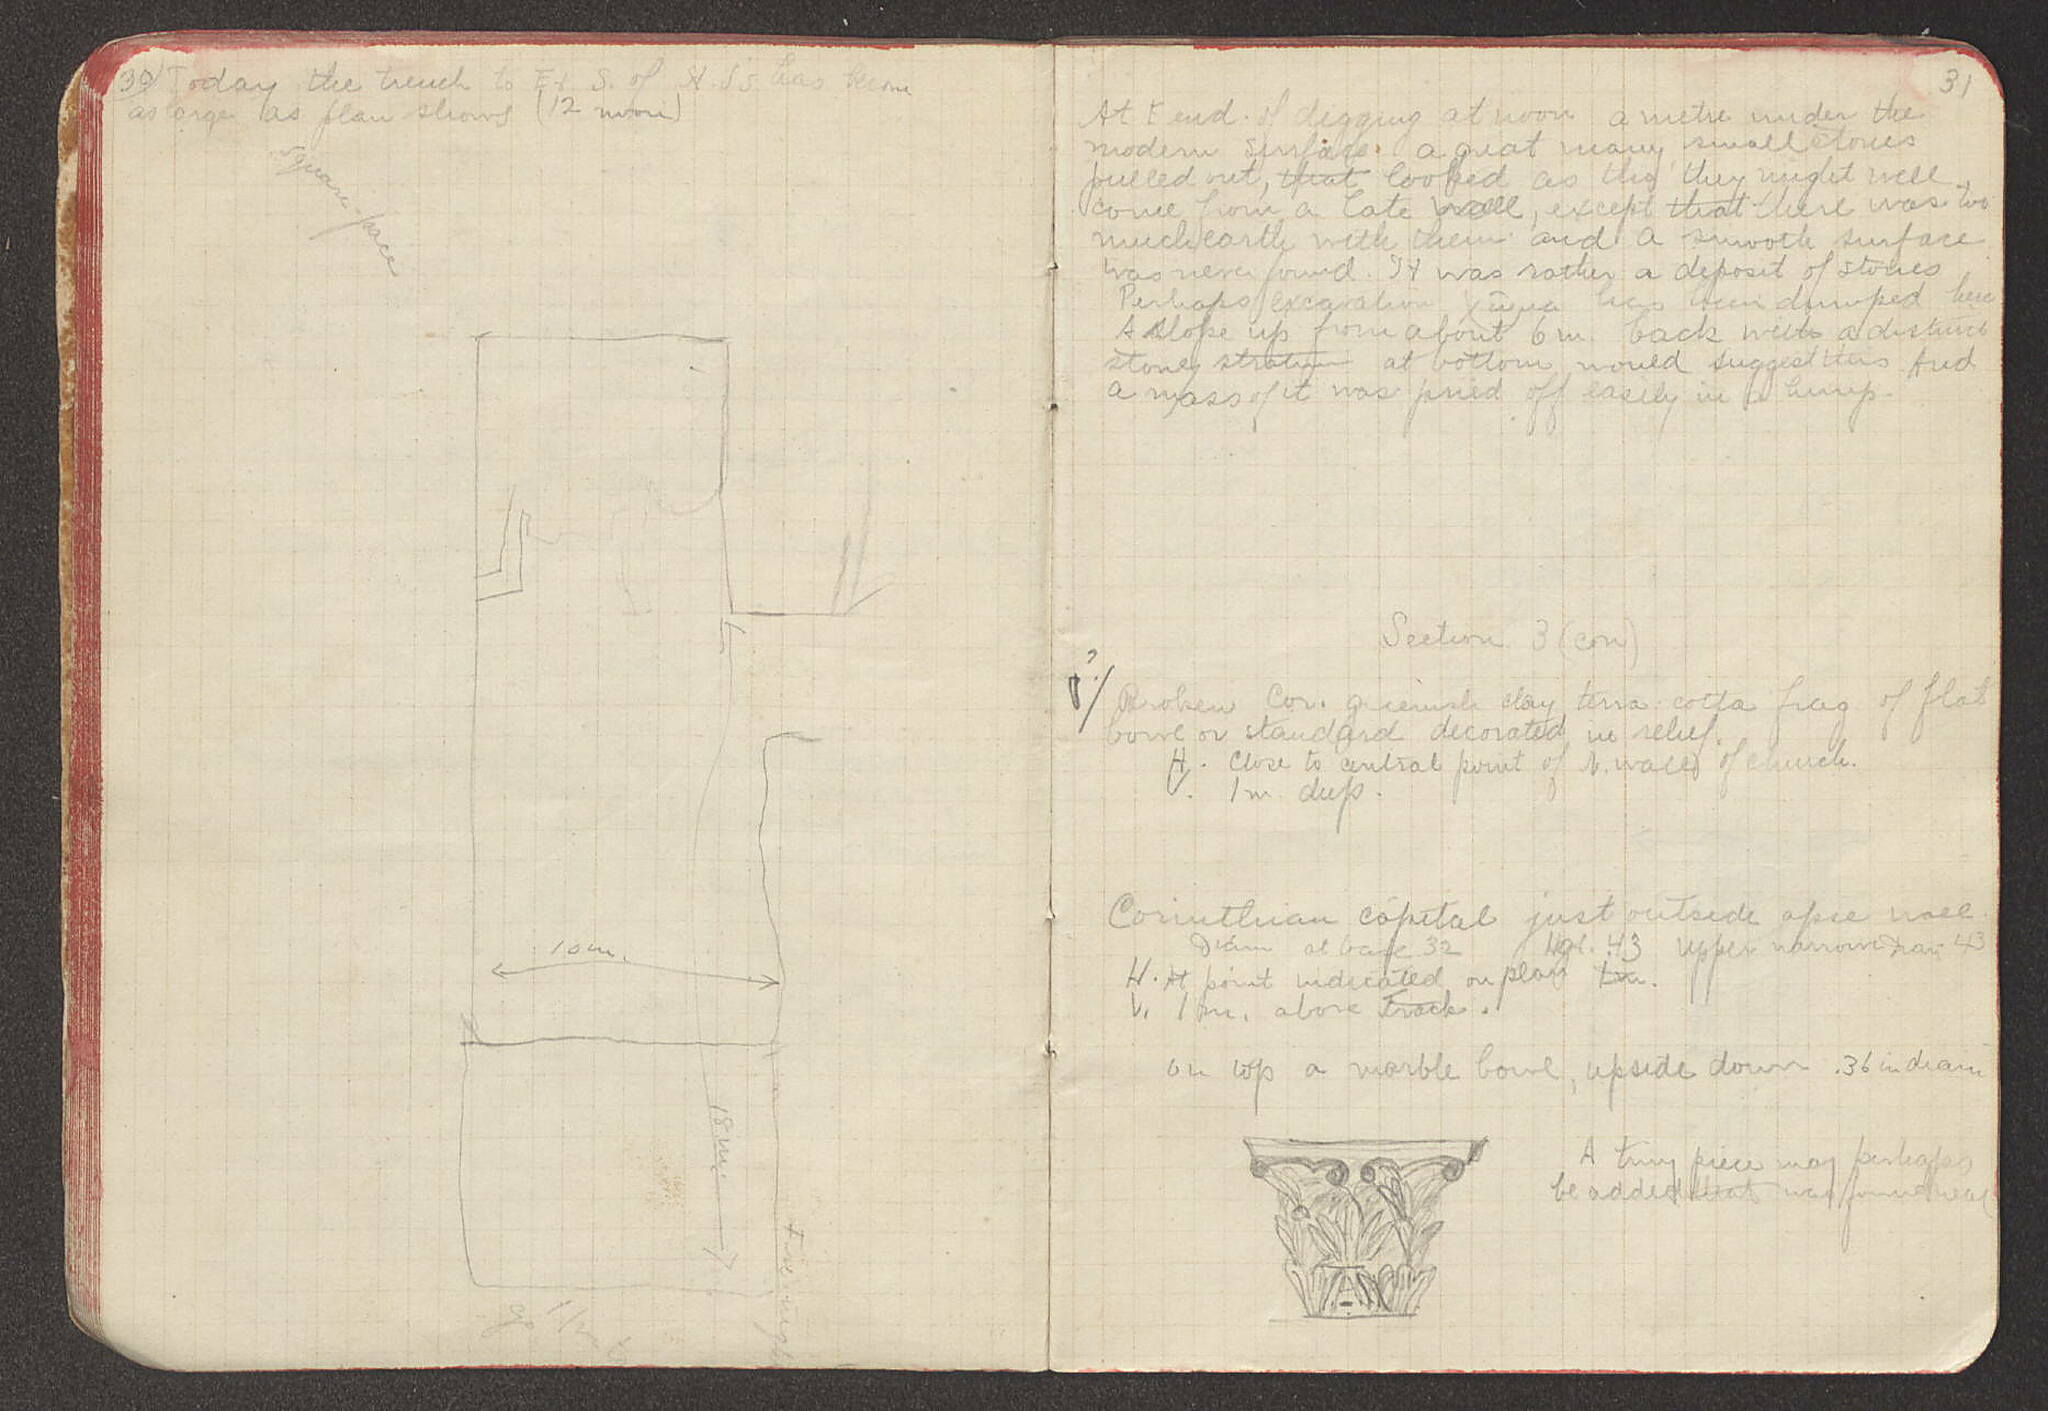 30 Today the trench to E & S. of St. J's has become
as large as plan shows (12 noon)
square.
10 m.
18 m
31
At E end of digging at noon a metre under the
modern surface a great many small stones
pulled out, that looked as tho they might well
come from a late wall, except that there was too
much earth with them and a smooth surface
was never found. It was rather a deposit of stones
Perhaps excavation χώμα has been dumped here
A slope up from about 6 m. back with a distinct
stoney stratum at bottom would suggest this And
a mass of it was pried off easily in a lump.
Section 3 (con)
?
V/ Broken Cor. greenish clay terra cotta frag of flat
bowl or standard decorated in relief.
H. Close to central point of N. wall of church.
V. 1 m deep.
Corinthian capital just outside apse wall
Diam at base 32 Hgt. .43 upper narrow diam 43
H. At point indicated on plan 1m.
V. 1 m. above track.
on top a marble bowl, upside down .36 in diam
A tiny piece may perhaps
be added that was found near